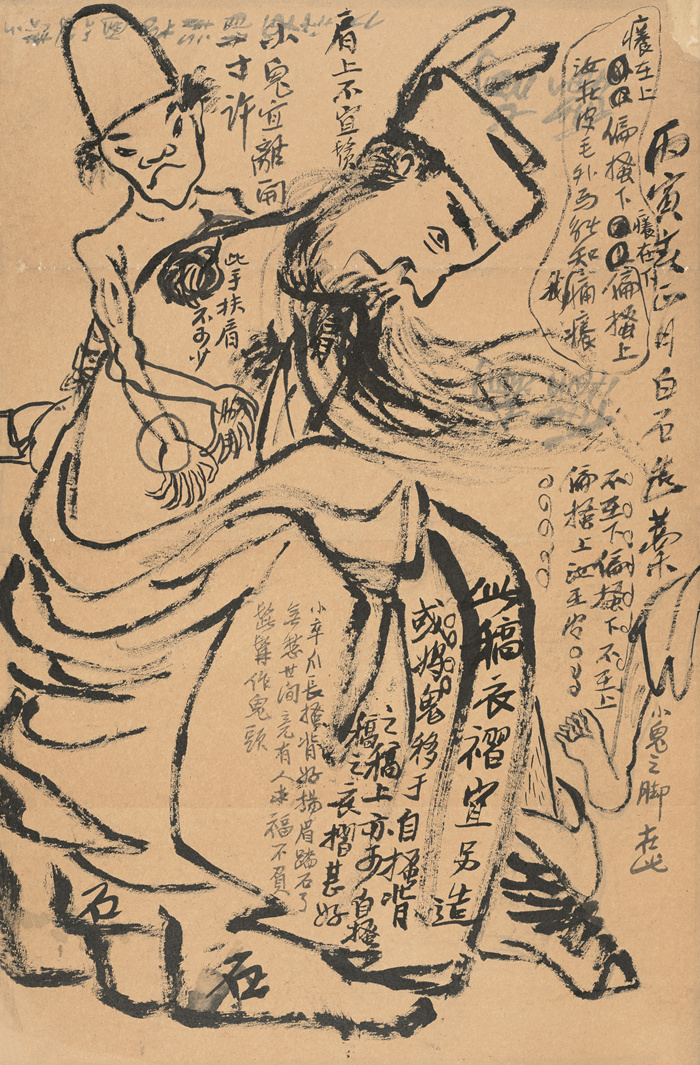 丙寅春正月白石造藁
癢在上
偏搔下
癢在下
偏搔上
汝在皮毛外焉能知我痛癢
不至下偏搔下不至上
偏搔上
小鬼之脚在此
肩上不宜鬚
小鬼宜離開
二寸許
此手扶肩
不可少
此稿衣褶宜另造
或將鬼移于自搔背
之稿上亦可自搔
稿之衣摺甚好
小卒爪長搔背好揚眉踏石了
無愁世间竟有人求福不負
鬅鬙作鬼頭
石
石